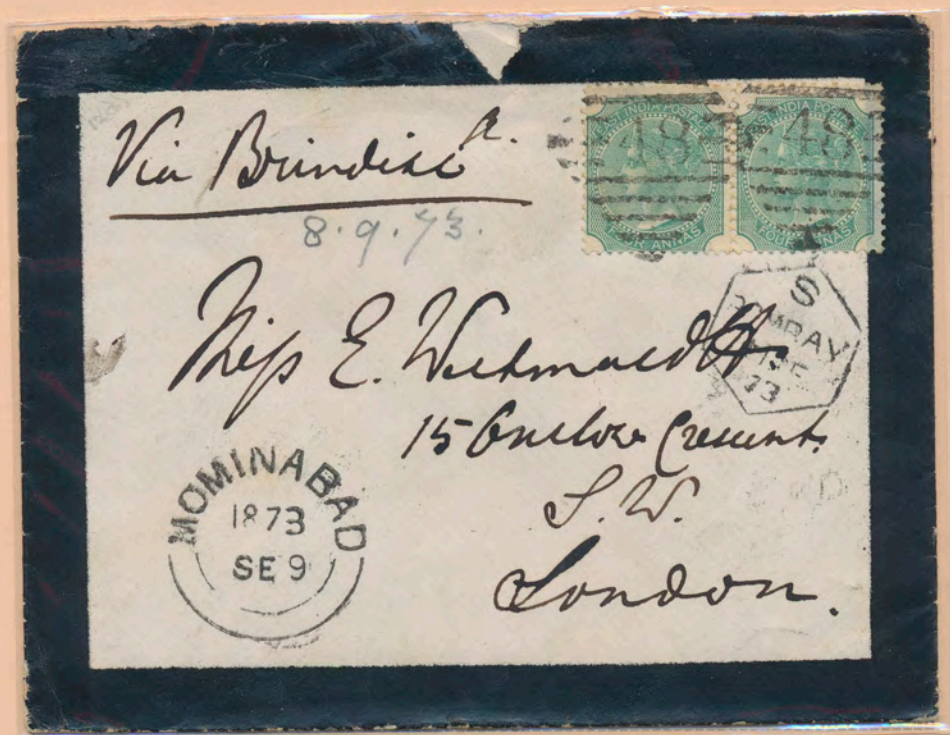 Via Brindisi
8.9.73.
EAST INDIA POSTAGE
48
FOUR ANNAS
EAST INDIA POSTAGE
48
FOUR ANNAS
S
BOMBAY
73
Miss E.
15 Onslow Crescent
S.W.
London.
MOMINABAD
1873
SE 9